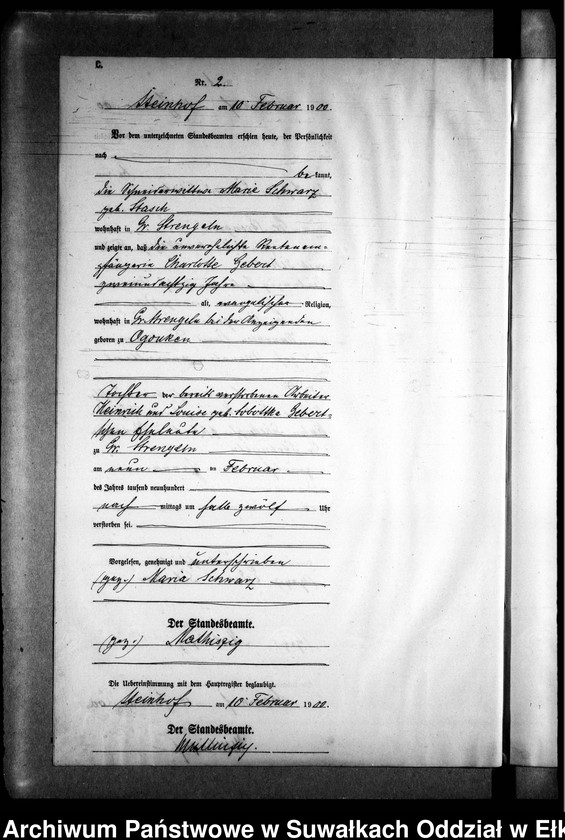 C.
Nr. 2.
Steinhof am 10 Februar 1900.
Vor dem unterzeichneten Standesbeamten erschien heute, der Persönlichkeit
nach
be kannt,
die Schneiderwittwe Maria Schwarz
geb. Stasch
wohnhaft in Gr. Strengeln
und zeigte an, daß die unverehelichte Rentenem-
pfängerin Charlotte Gebert
zweiundachtzig Jahre
alt, evangelischer Religion,
wohnhaft in Gr. Strengeln bei der Anzeigenden
geboren zu Ogonken
Tochter der bereits verstorbenen Arbeiter
Heinrich und Louise geb. Sobottka Gebert-
schen Eheleute
zu Gr. Strengeln
am neun ten Februar
des Jahres tausend neunhundert
nach mittags um halb zwölf Uhr
verstorben sei.
Vorgelesen, genehmigt und unterschrieben
(gez.) Maria Schwarz
Der Standesbeamte.
(gez.) Mathiszig
Die Uebereinstimmung mit dem Hauptregister beglaubigt.
Steinhof am 10 Februar 1900.
Der Standesbeamte.
Mathiszig.
Archiwum Państwowe w Suwałkach Oddział w Ełk